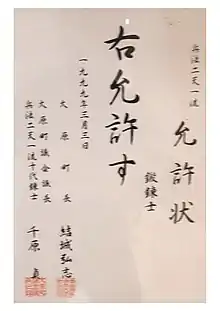 兵法二天一流
允許状
鍛錬士
右允許す
一九九九年三月三日
大原町長 結城弘志
大原町議会議長
兵法二天一流千代錬士 千原貞